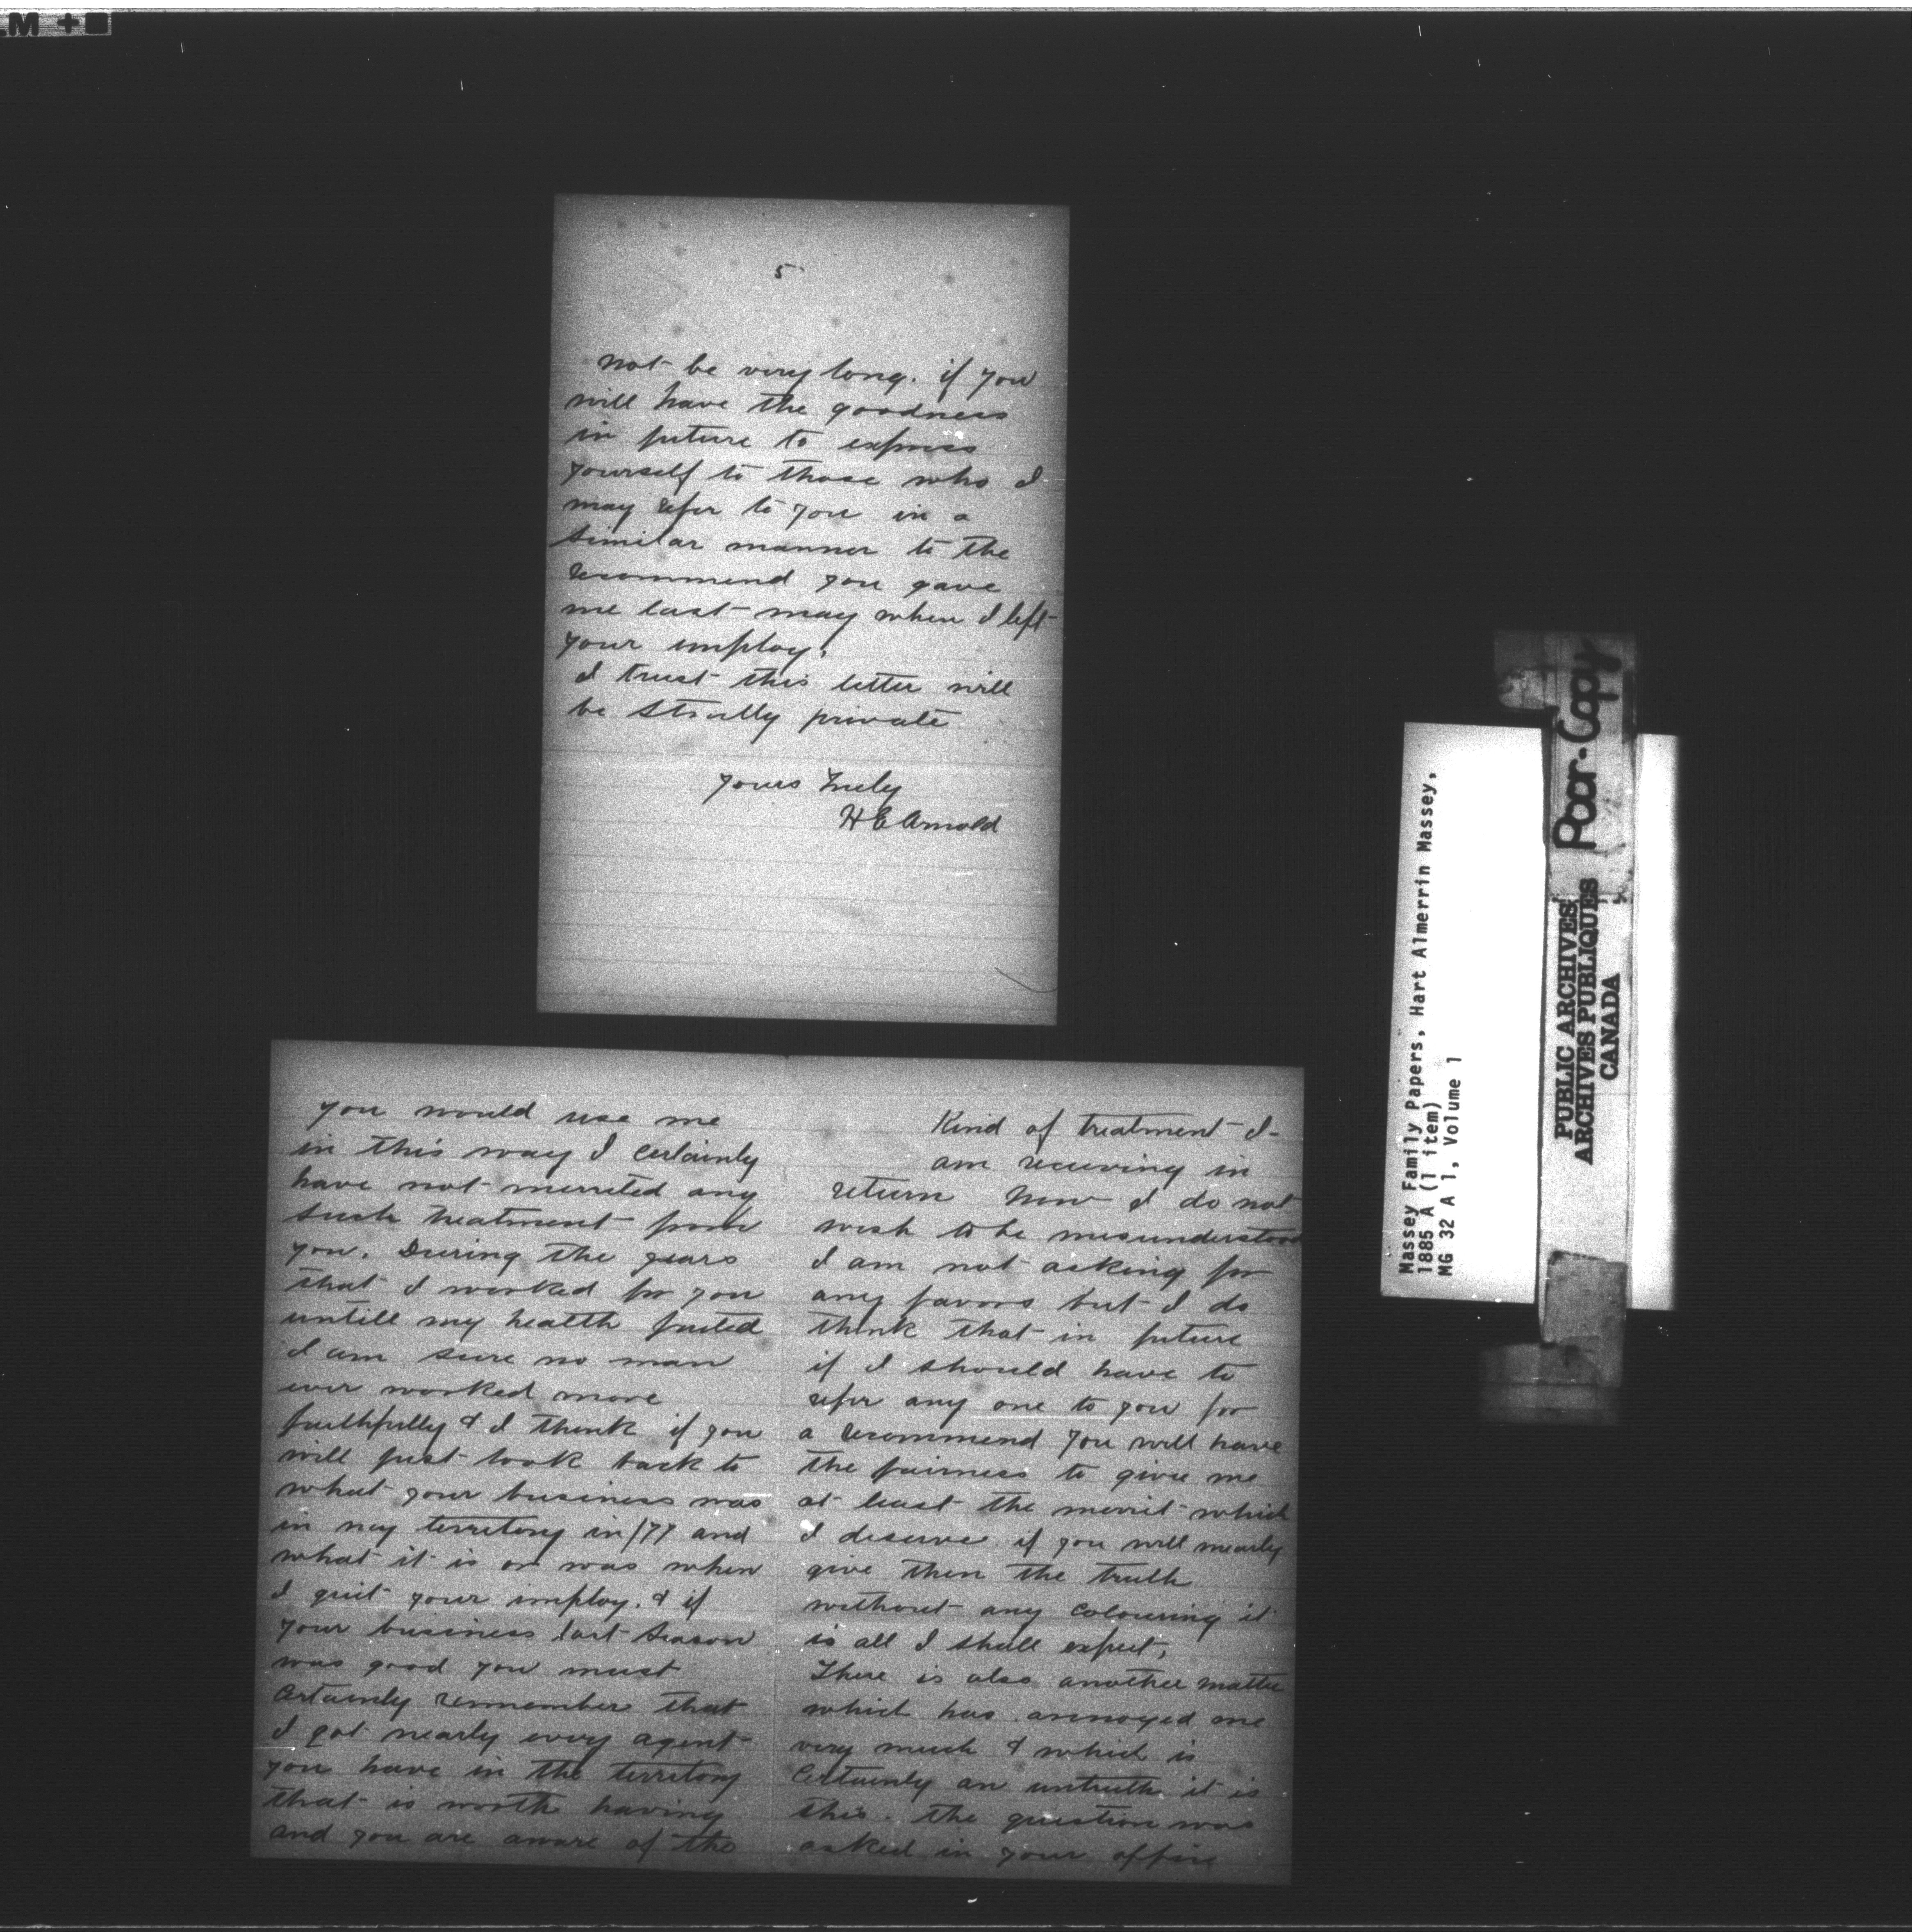 M +
5
not be very long. if you
will have the goodness
in future to express
yourself to those who I
may refer to you in a
similar manner to the
recommend you gave
me last may when I left
your imploy.
I trust this letter will
be strictly private
Yours Truly
H E Arnold
you would use me
in this way I certainly
have not merrited any
such treatment from
you. During the years
that I worked for you
untill my health failed
I am sure no man
ever worked more
faithfully & I think if you
will just look back to
what your business was
in my territory in /77 and
what it is or was when
I quit your imploy. & if
your business last season
was good you must
certainly remmember that
I got nearly every agent
you have in the territory
that is worth having
and you are aware of the
Kind of treatment I
am recieving in
return Now I do not
wish to be misunderstood
I am not asking for
any favors but I do
think that in future
if I should have to
refer any one to you for
a recommend you will have
the fairness to give me
at least the merrit which
I deserve if you will mearly
give them the truth
without any colouring it
is all I shall expect,
There is also another matter
which has annoyed me
very much & which is
certainly an untruth it is
this. the question was
asked in your office
Massey Family Papers, Hart Almerrin Massey,
1885 A (1 item)
MG 32 A 1, Volume 1
Poor-Copy
PUBLIC ARCHIVES
ARCHIVES PUBLIQUES
CANADA